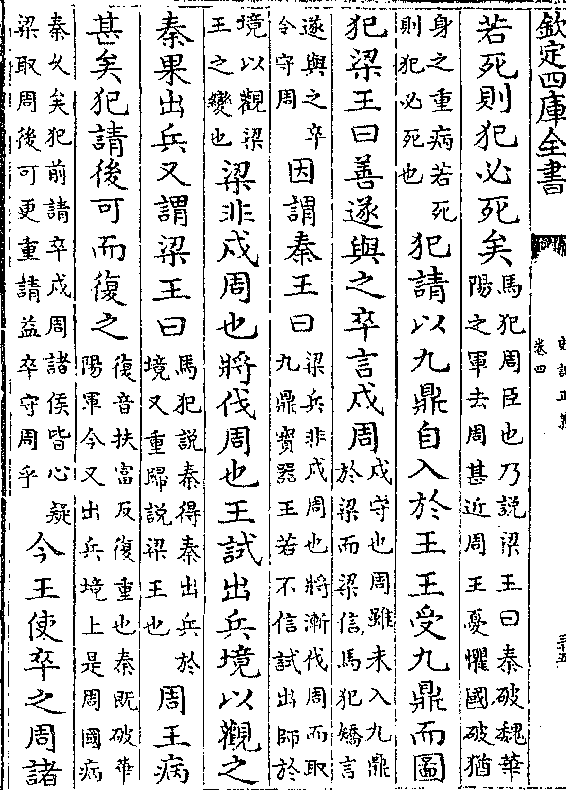 欽定四庫全書
史記正義
卷四
三十五
若死則犯必死矣
馬犯周臣也乃説梁王曰秦破魏華
陽之軍去周甚近周王憂懼國破猶
身之重病若死
則犯必死也
犯請以九鼎自入於王王受九鼎而圖
犯梁王曰善遂與之卒言戍周
戍守也周雖未入九鼎
於梁而梁信馬犯矯言
遂與之卒
令守周
因謂秦王曰
梁兵非戍周也將漸伐周而取
九鼎寶器王若不信試出師於
境以觀梁
王之變也
梁非戍周也將伐周也王試出兵境以觀之
秦果出兵又謂梁王曰
馬犯説秦得秦出兵於
境又重歸説梁王也
周王病
甚矣犯請後可而復之
復音扶富反復重也秦既破華
陽軍今又出兵境上是周國病
秦久矣犯前請卒戍周諸侯皆心疑
梁取周後可更重請益卒守周乎
今王使卒之周諸